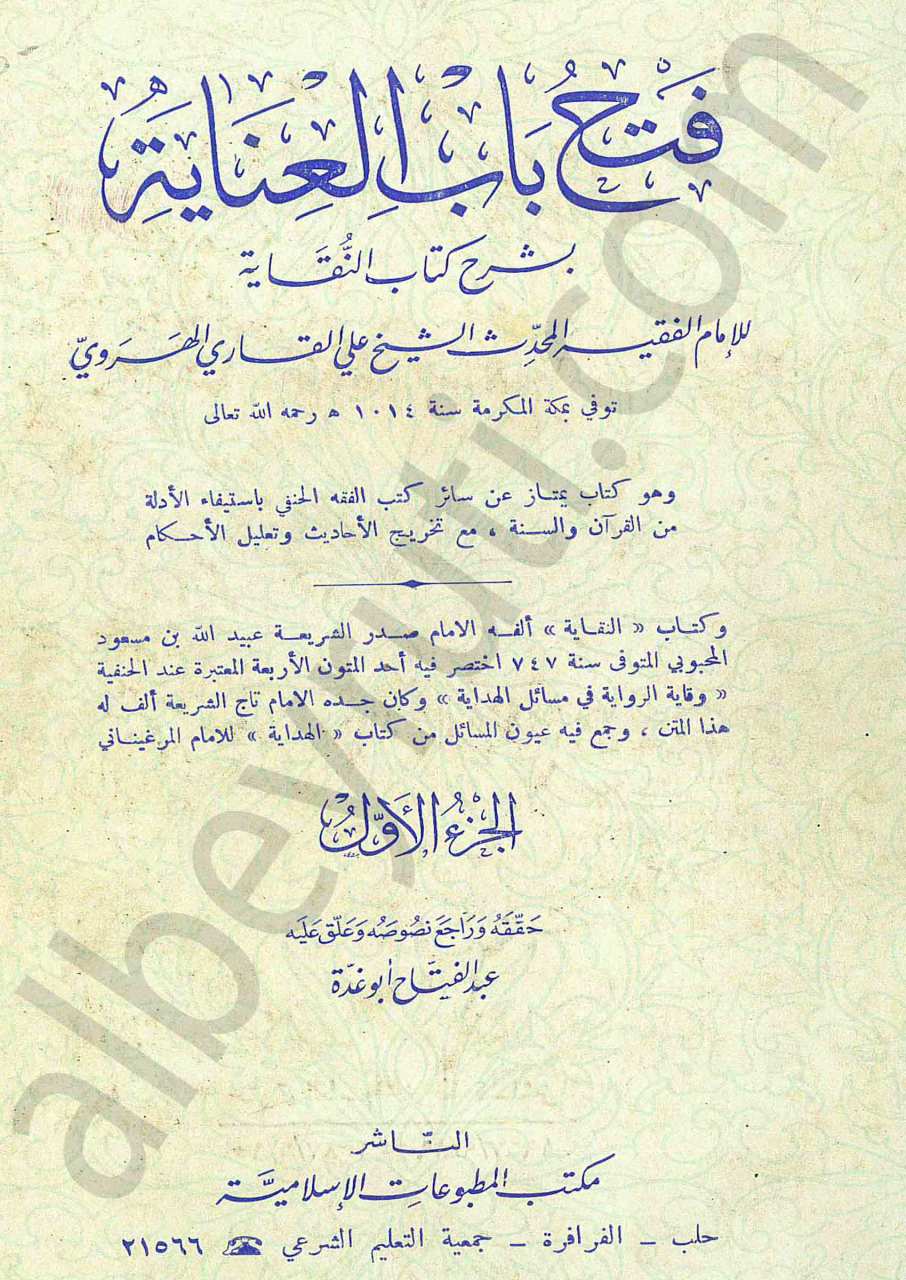 فَتْحُ بَابِ الْعِنَايَةِ
بشرح كتاب النُّقَاية
للإمام الفقيه المحدِّث الشيخ علي القاري الهَرَويّ
توفي بمكة المكرمة سنة ١٠١٤ ه رحمه الله تعالى
وهو كتاب يمتاز عن سائر كتب الفقه الحنفي باستيفاء الأدلة
من القرآن والسنة ، مع تخريج الأحاديث وتعليل الأحكام
وكتاب « النقاية » ألفه الامام صدر الشريعة عبيد الله بن مسعود
المحبوبي المتوفى سنة ٧٤٧ اختصر فيه أحد المتون الأربعة المعتبرة عند الحنفية
« وقاية الرواية في مسائل الهداية » وكان جده الامام تاج الشريعة ألف له
هذا المتن ، وجمع فيه عيون المسائل من كتاب « الهداية » للامام المرغيناني
الجزءُ الأوّلُ
حَقَّقَهُ وَرَاجَعَ نصُوصَهُ وَعَلّقَ عَلَيه
عبد الفتَّاح أبو غدّة
النّاشر
مكتب المطبوعاتِ الإسلاميَّة
حلب - الفرافرة - جمعية التعليم الشرعي ☎ ٢١٥٦٦
albeyruti.com